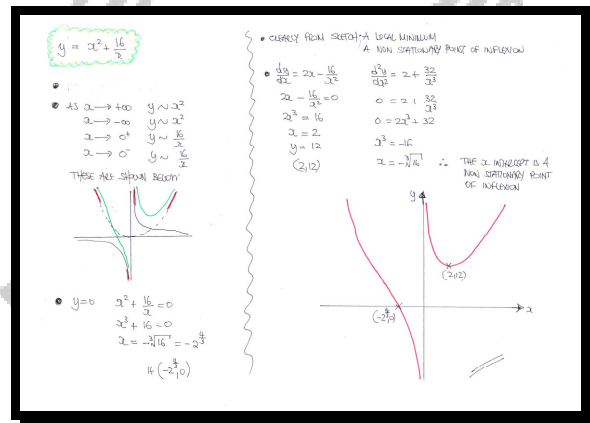 y = x² + 16/x
AS x → +∞ y ~ x²
x → -∞ y ~ x²
x → 0⁺ y ~ 16/x
x → 0⁻ y ~ 16/x
THESE ARE SHOWN BELOW
y=0 x² + 16/x = 0
x³ + 16 = 0
x = -∛16 = -2^(4/3)
IE (-2^(4/3), 0)
CLEARLY FROM SKETCH A LOCAL MINIMUM
A NON STATIONARY POINT OF INFLEXION
dy/dx = 2x - 16/x² d²y/dx² = 2 + 32/x³
2x - 16/x² = 0 0 = 2 + 32/x³
2x³ = 16 0 = 2x³ + 32
x = 2 x³ = -16
y = 12 x = -∛16 ∴ THE x INTERCEPT IS A
(2,12) NON STATIONARY POINT
OF INFLEXION
y
(2,12)
x
(-2^(4/3), 0)